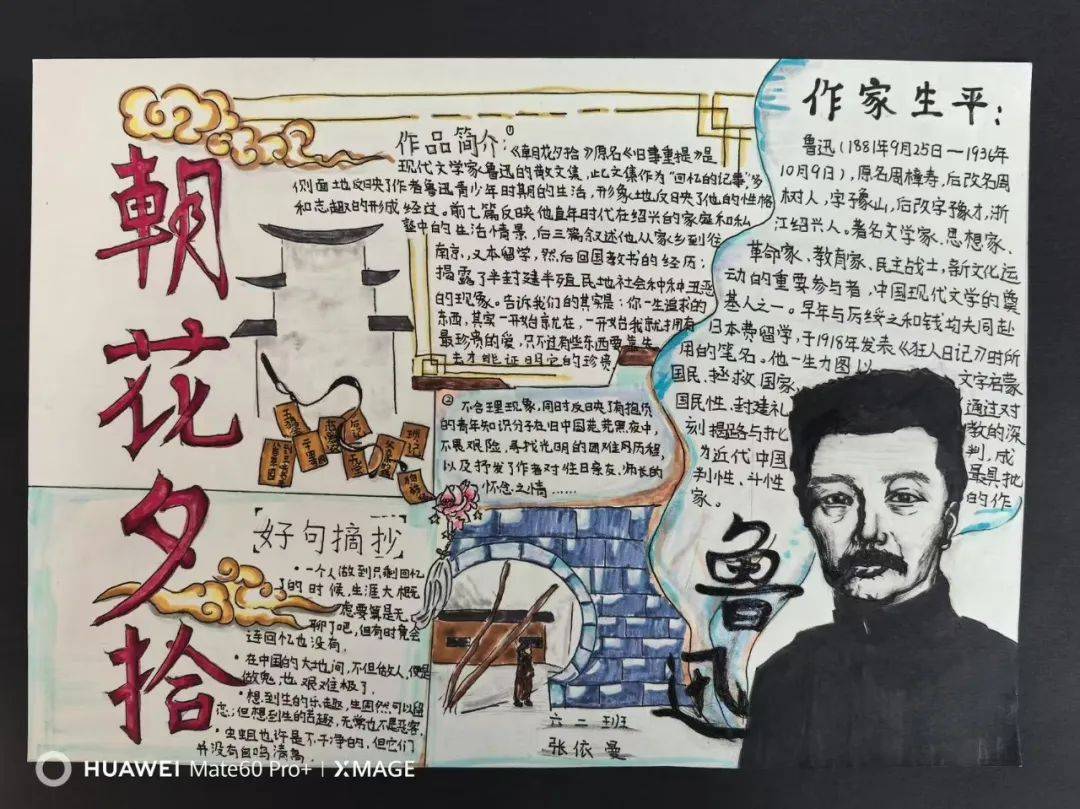 朝花夕拾
作品简介:①
《朝花夕拾》原名《旧事重提》是
现代文学家鲁迅的散文集,此文集作为"回忆的记事"多
侧面地反映了作者鲁迅青少年时期的生活,形象地反映了他的性格
和志趣的形成经过。前七篇反映他童年时代在绍兴的家庭和私
塾中的生活情景,后三篇叙述他从家乡到往
南京,又本留学,然后回国教书的经历;
揭露了半封建半殖民地社会种种丑恶
的现象。告诉我们的其实是:你一生追求的
东西,其实一开始就在,一开始我就拥有
最珍贵的爱,只不过有些东西要靠失
去才能证明它的珍贵
②不合理现象,同时反映了有抱负
的青年知识分子在旧中国茫茫黑夜中,
不畏艰险,寻找光明的困难历程,
以及抒发了作者对往日亲友,师长的
怀念之情……
好句摘抄
·一个人做到只剩回忆
了的时候,生涯大概
要算是无
聊了吧,但有时竟会
连回忆也没有,
·在中国的大地间,不但做人,便是
做鬼,也艰难极了,
·想到生的乐趣,生固然可以留
恋;但想到生的苦趣,无常也不是恶客,
·虫蛆也许是不干净的,但它们
并没有自鸣清高
六二班
张依曼
作家生平:
鲁迅(1881年9月25日—1936年
10月9日),原名周樟寿,后改名周
树人,字豫山,后改字豫才,浙
江绍兴人。著名文学家、思想家、
革命家、教育家、民主战士,新文化运
动的重要参与者,中国现代文学的奠
基人之一。早年与厉绥之和钱均夫同赴
日本费留学,于1918年发表《狂人日记》时所
用的笔名。他一生力图以文字名蒙
国民、拯救国家通过对
国民性、封建礼教的深
刻揭路与批判,成
为近代中国最具批
判性、斗性的作
家。
鲁迅
HUAWEI Mate60 Pro+ | XMAGE